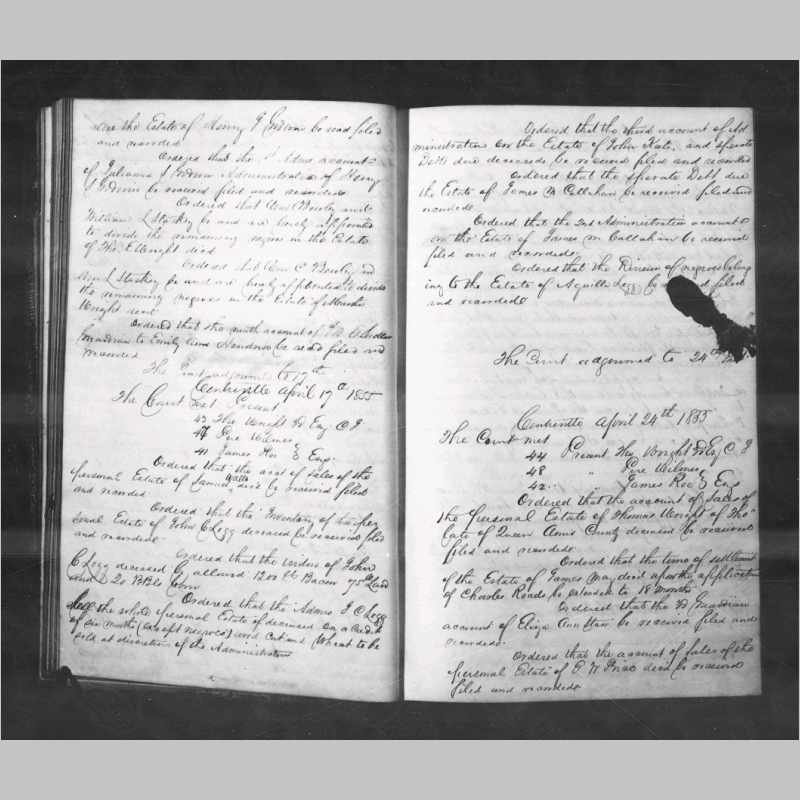 the Estate of Henry J Godwin be read filed
and recorded
Ordered that the 1st Adms account
of Julianna J Godwin Administratrix of Henry
J Godwin be received filed and recorded
Ordered that Wm C Bowley and
William L Starkey be and are hereby appointed
to divide the remaining negroes in the Estate
of Tho E Wright decd
Ordered that Wm C Bowley and
Wm L Starkey be and are hereby appointed to divide
the remaining negroes in the Estate of
Wright decd
Ordered that the ninth account of
Guardian to Emily Ann be read filed and
recorded
The Court adjourned to 17th
Centreville April 17th 1855
The Court met Present
43 Tho Wright Esq C J
47 Pere Wilmer
41 James Roe Esqr
Ordered that the acct of sales of the
personal Estate of Samuel decd be received filed
and recorded
Ordered that the Inventory of the per
sonal Estate of John C Legg deceased be received filed
and recorded
Ordered that the widow of John
C Legg deceased be allowed 1200 lb Bacon 75 lb Lard
and 20 BBls Corn
Ordered that the Admr J C Legg
sell the whole personal Estate of deceased on a Credit
of six months (except negroes) and Corn and Wheat to be
sold at discretion of the Administrator
Ordered that the third account of Ad
ministration on the Estate of John and sperate
Debts due deceased be received filed and recorded
Ordered that the sperate Debts due
the Estate of James M Callahan be received filed and
recorded
Ordered that the 2nd Administration account
on the Estate of James M Callahan be received
filed and recorded
Ordered that the Division of negroes belong
ing to the Estate of Aquilla be filed
and recorded
The Court adjourned to 24th
Centreville April 24th 1855
The Court met
44 Present Tho Wright Esq C J
48 " Pere Wilmer
42 " James Roe Esq
Ordered that the account of sales of
the personal Estate of Thomas Wright of Tho
late of Queen Anns County deceased be received
filed and recorded
Ordered that the time of settlement
of the Estate of James May decd upon the application
of Charles Roads be extended to 18 months
Ordered that the Guardian
account of Eliza Ann be received filed and
recorded
Ordered that the account of sales of the
personal Estate of W Price decd be received
filed and recorded